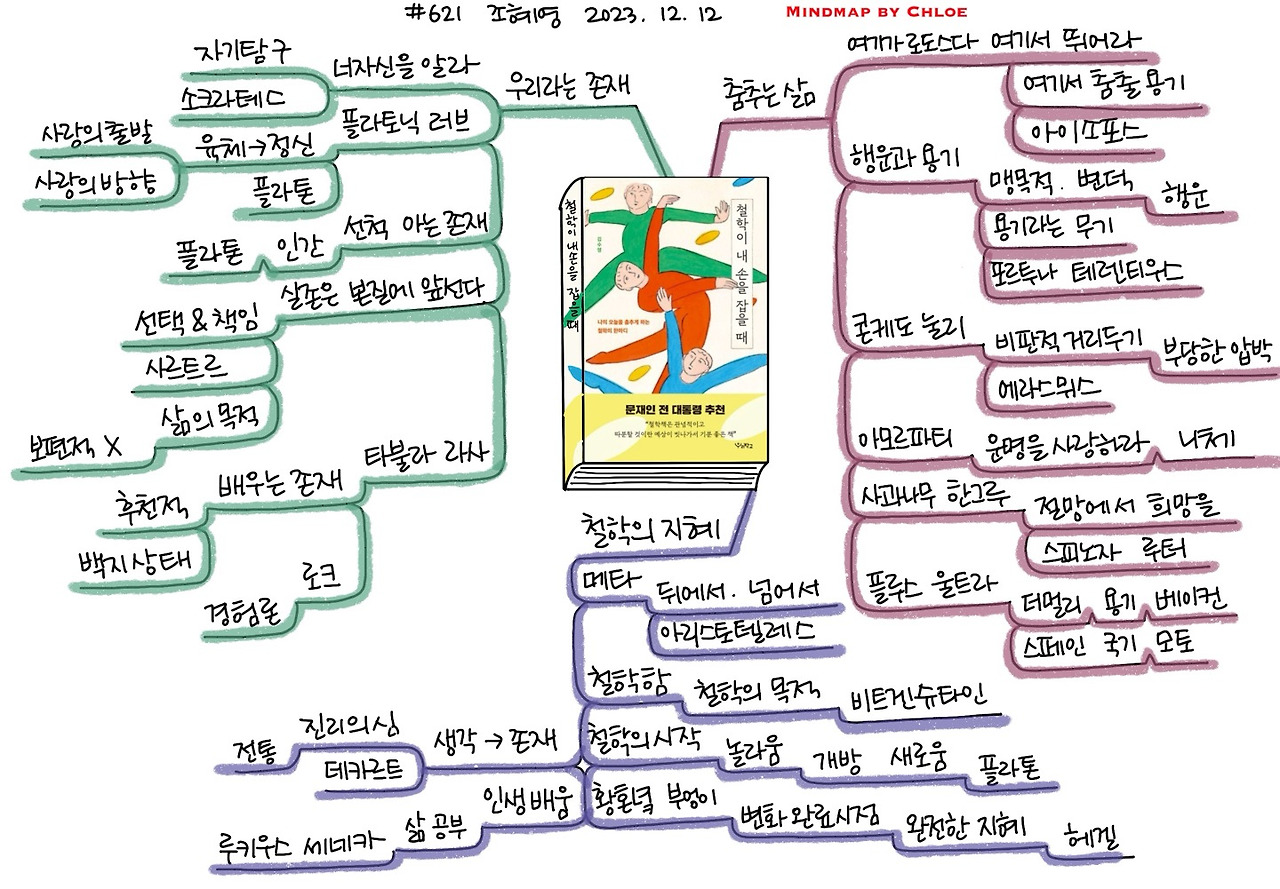 #621 조혜영 2023. 12. 12
MINDMAP BY CHLOE
우리라는 존재
너자신을 알라
자기탐구
소크라테스
플라토닉 러브
육체→정신
사랑의 출발
사랑의 방향
플라톤
선척 아는 존재
인간
플라톤
실존은 본질에 앞선다
선택 & 책임
사르트르
삶의 목적
보편적 X
타불라 라사
배우는 존재
후천적
백지상태
로크
경험론
춤추는 삶
여기가 로도스다 여기서 뛰어라
여기서 춤출 용기
아이소포스
행운과 용기
맹목적. 변덕
행운
용기라는 무기
포르투나 테렌티우스
콘케도 눌리
비판적 거리두기
부당한 압박
에라스뮈스
아모르파티
운명을 사랑하라
니체
사과나무 한그루
절망에서 희망을
스피노자 루터
플루스 울트라
더멀리 용기 베이컨
스페인 국기 모토
철학이 내 손을 잡을 때
철학이 내 손을 잡을 때
김수영
나의 오늘을 춤추게 하는
철학의 한마디
문재인 전 대통령 추천
"철학책은 관념적이고
따분할 것이란 예상이 빗나가서 기분 좋은 책"
철학의 지혜
메타
뒤에서. 넘어서
아리스토텔레스
철학함
철학의 목적
비트겐슈타인
철학의 시작
놀라움
개방 새로움
플라톤
황혼녘 부엉이
변화 완료시점
완전한 지혜
헤겔
생각 → 존재
진리의심
전통
데카르트
인생 배움
삶 공부
루키우스 세네카